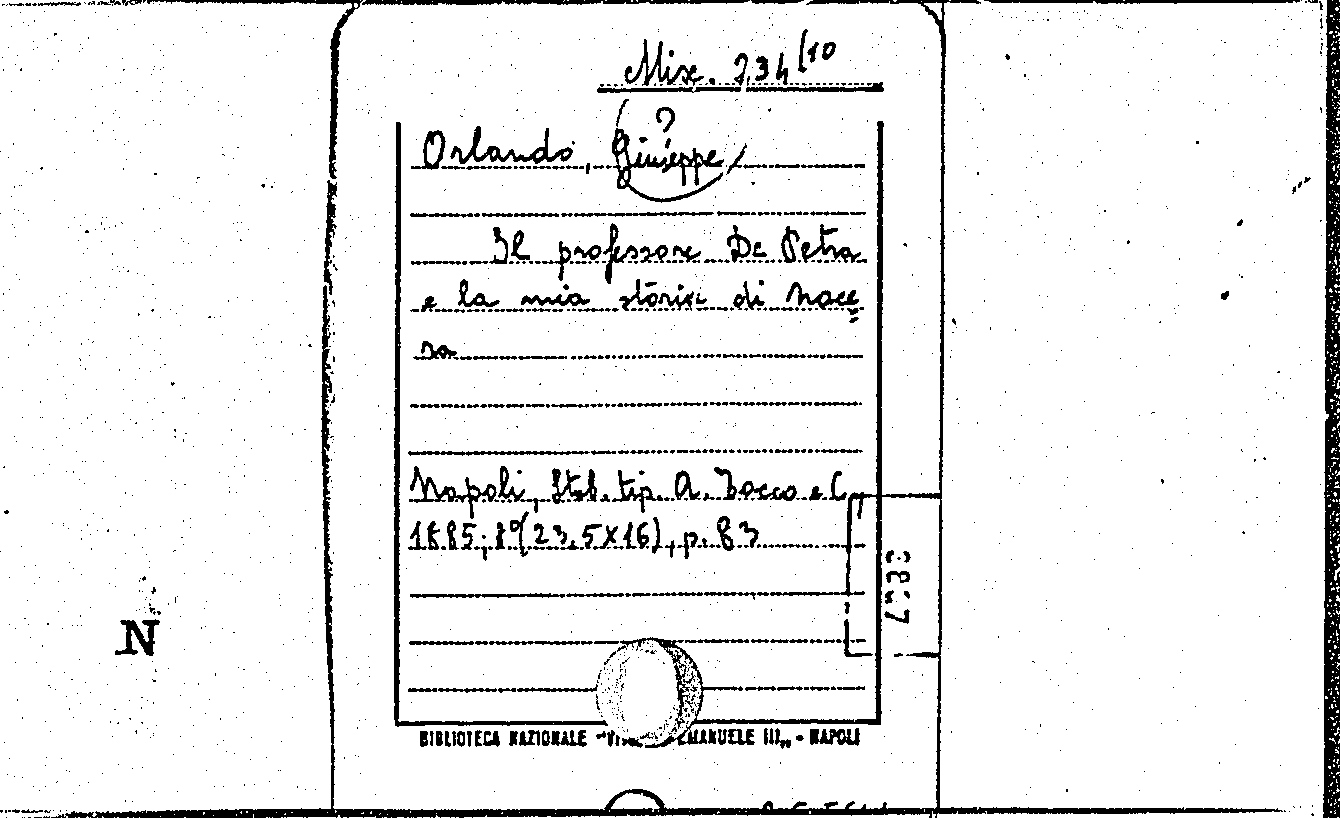 Misc. 234/10
?
Orlando, (Giuseppe)
Il professore De Petra
e la mia storia di Noce
ra
Napoli, Stab. tip. A. Tocco e C.,
1885, 8°(23,5x16), p. 83
N
BIBLIOTECA NAZIONALE "VITT EMANUELE III„ - NAPOLI